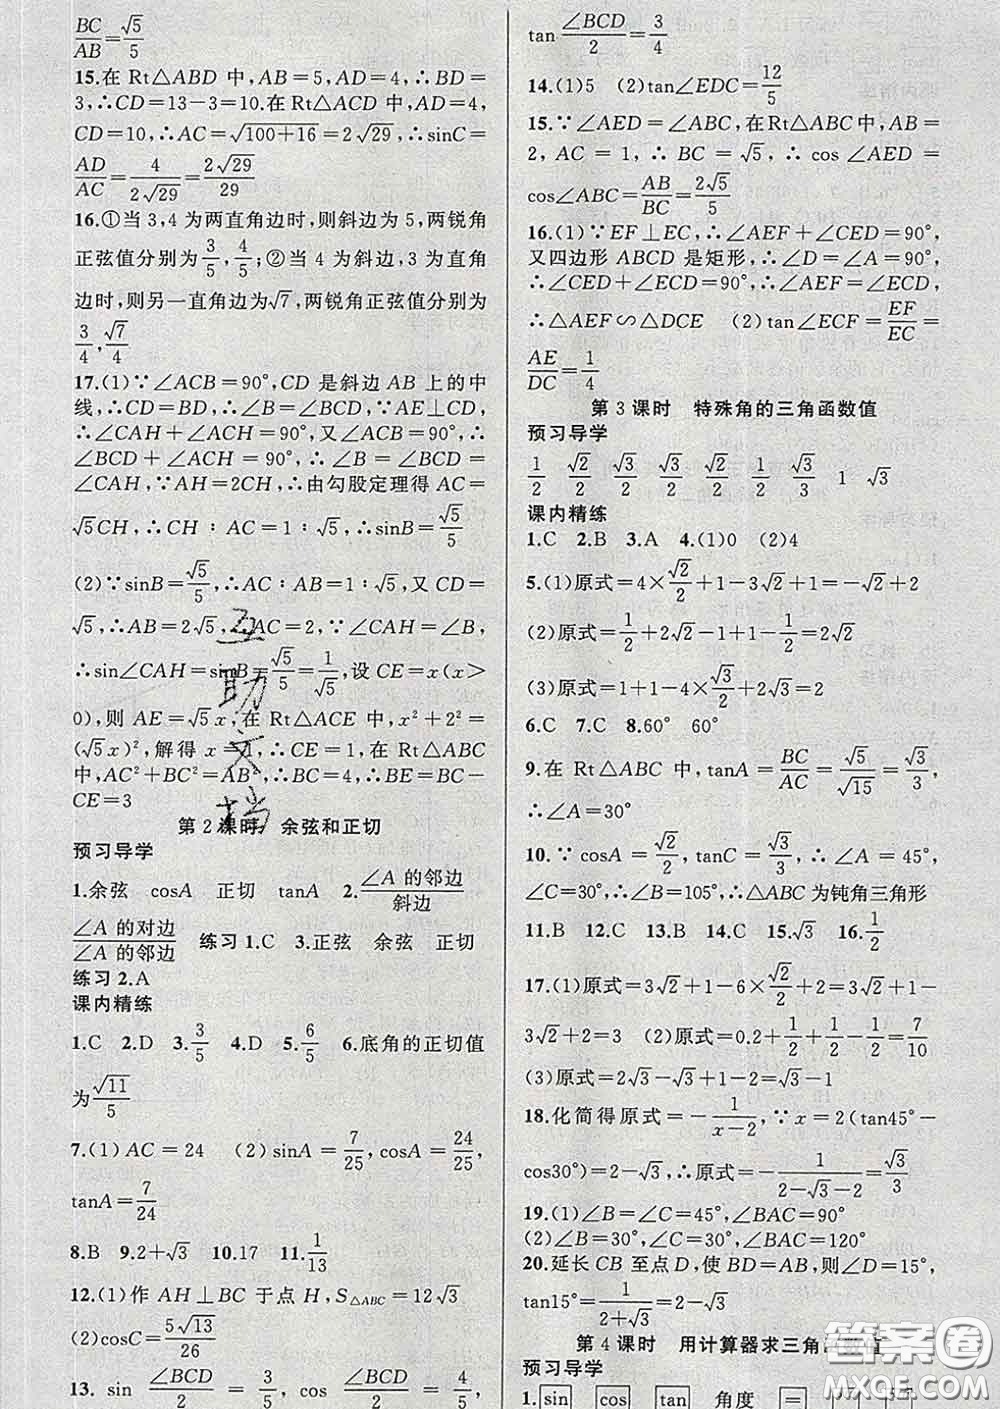 BC/AB=√5/5
15.在 Rt△ABD 中,AB=5,AD=4,∴BD=
3,∴CD=13-3=10.在Rt△ADC 中,AD=4,
CD=10,∴AC=√(100+16)=2√29,∴sinC=
AD/AC=4/(2√29)=2√29/29
16.①当 3,4 为两直角边时,则斜边为 5,两锐角
正弦值分别为3/5,4/5;②当 4 为斜边,3 为直角
边时,则另一直角边为√7,两锐角正弦值分别为
3/4,√7/4
17.(1)∵∠ACB=90°,CD 是斜边 AB 上的中
线,∴CD=BD,∴∠B=∠BCD,∵AE⊥CD,
∴∠CAH+∠ACH=90°,又∠ACB=90°,∴
∠BCD+∠ACH=90°,∴∠B=∠BCD=
∠CAH,∵AH=2CH,∴由勾股定理得 AC=
√5CH,∴CH∶AC=1∶√5,∴sinB=√5/5
(2)∵sinB=√5/5,∴AC∶AB=1∶√5,又 CD=
√5,∴AB=2√5,∴AC=2,∵∠CAH=∠B,
∴sin∠CAH=sinB=√5/5=1/√5,设 CE=x(x>
0),则 AE=√5x,在 Rt△ACE 中,x²+2²=
(√5x)²,解得 x=1,∴CE=1,在 Rt△ABC
中,AC²+BC²=AB²,∴BC=4,∴BE=BC-
CE=3
第 2 课时 余弦和正切
预习导学
1.余弦 cosA 正切 tanA 2.∠A 的邻边/斜边
∠A 的对边/∠A 的邻边 练习 1.C 3.正弦 余弦 正切
练习 2.A
课内精练
1.C 2.D 3.3/5 4.D 5.6/5 6.底角的正切值
为√11/5
7.(1)AC=24 (2)sinA=7/25,cosA=24/25,
tanA=7/24
8.B 9.2+√3 10.17 11.1/13
12.(1)作 AH⊥BC 于点 H,S△ABC=12√3
(2)cosC=5√13/26
13. sin ∠BCD/2=3/5, cos ∠BCD/2=4/5,
tan ∠BCD/2=3/4
14.(1)5 (2)tan∠EDC=12/5
15.∵∠AED=∠ABC,在Rt△ABC中,AB=
2,AC=1,∴BC=√5,∴cos∠AED=
cos∠ABC=AB/BC=2√5/5
16.(1)∵EF⊥EC,∴∠AEF+∠CED=90°,
又四边形 ABCD 是矩形,∴∠D=∠A=90°,
∴∠CED+∠ECD=90°,∴∠AEF=∠ECD,
∴△AEF∽△DCE (2)tan∠ECF=EF/EC=
AE/DC=1/4
第 3 课时 特殊角的三角函数值
预习导学
1/2 √2/2 √3/2 √3/2 √2/2 1/2 √3/3 1 √3
课内精练
1.C 2.B 3.A 4.(1)0 (2)4
5.(1)原式=4×√2/2+1-3√2+1=-√2+2
(2)原式=1/2+2√2-1+1/2=2√2
(3)原式=1+1-4×√3/2+2√3=2
6.C 7.C 8.60° 60°
9.在 Rt△ABC 中,tanA=BC/AC=√5/√15=√3/3,
∴∠A=30°
10.∵cosA=√2/2,tanC=√3/3,∴∠A=45°,
∠C=30°,∴∠B=105°,∴△ABC 为钝角三角形
11.B 12.C 13.B 14.C 15.√3 16.1/2
17.(1)原式=3√2+1-6×√2/2+2=3√2+1-
3√2+2=3 (2)原式=0.2+1/2+1/2-1/2=7/10
(3)原式=2√3-√3+1-√3=1
18.化简得原式=-1/(x-2),∵x=2(tan45°-
cos30°)=2-√3,∴原式=-1/(2-√3-2)=√3/3
19.(1)∠B=∠C=45°,∠BAC=90°
(2)∠B=30°,∠C=30°,∠BAC=120°
20.延长 CB 至点 D,使 BD=AB,则∠D=15°,
tan15°=1/(2+√3)=2-√3
第 4 课时 用计算器求三角函数值
预习导学
1.sin cos tan 角度 =
互助文档
答案圈
MXQE.COM